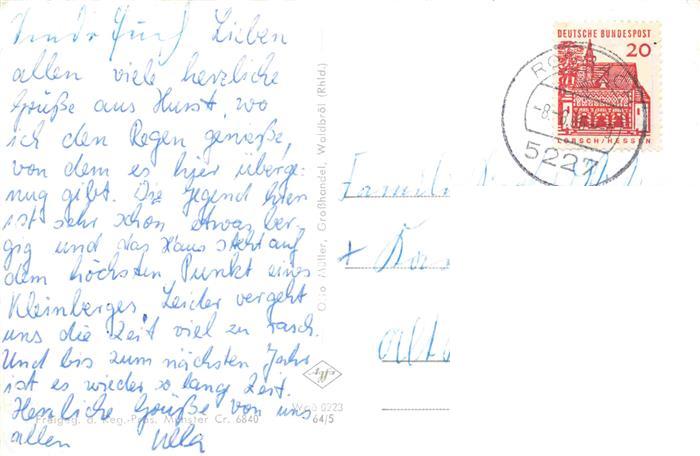 Lieben
allen viele herzliche
Grüße aus Hurst, wo
ich den Regen genieße,
von dem es hier überge-
nug gibt. Die Gegend hier
ist sehr schön etwas ber-
gig und das Haus steht auf
dem höchsten Punkt eines
Kleinberges. Leider vergeht
uns die Zeit viel zu rasch.
Und bis zum nächsten Jahr
ist es wieder so lang Zeit.
Herzliche Grüße von uns
allen Ulla
Freigeg. d. Reg.-Präs. Münster Cr. 6840
Wo 0223
64/5
Otto Müller, Großhandel, Waldbröl (Rhld.)
DEUTSCHE BUNDESPOST
20
LORSCH/HESSEN
5227
Familie